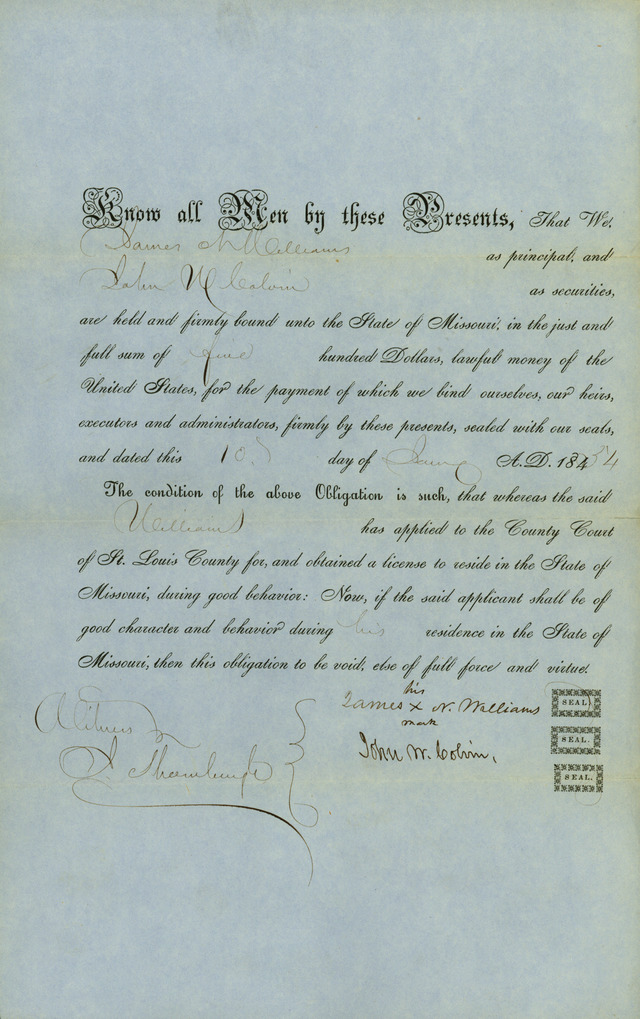 Know all Men by these Presents, That We,
James N Williams as principal, and
John W Colvin as securities,
are held and firmly bound unto the State of Missouri, in the just and
full sum of five hundred Dollars, lawful money of the
United States, for the payment of which we bind ourselves, our heirs,
executors and administrators, firmly by these presents, sealed with our seals,
and dated this 10 day of A.D. 1854
The condition of the above Obligation is such, that whereas the said
Williams has applied to the County Court
of St. Louis County for, and obtained a license to reside in the State of
Missouri, during good behavior: Now, if the said applicant shall be of
good character and behavior during his residence in the State of
Missouri, then this obligation to be void, else of full force and virtue.
his
James x N. Williams SEAL
mark
Witness
John W. Colvin. SEAL.
SEAL.